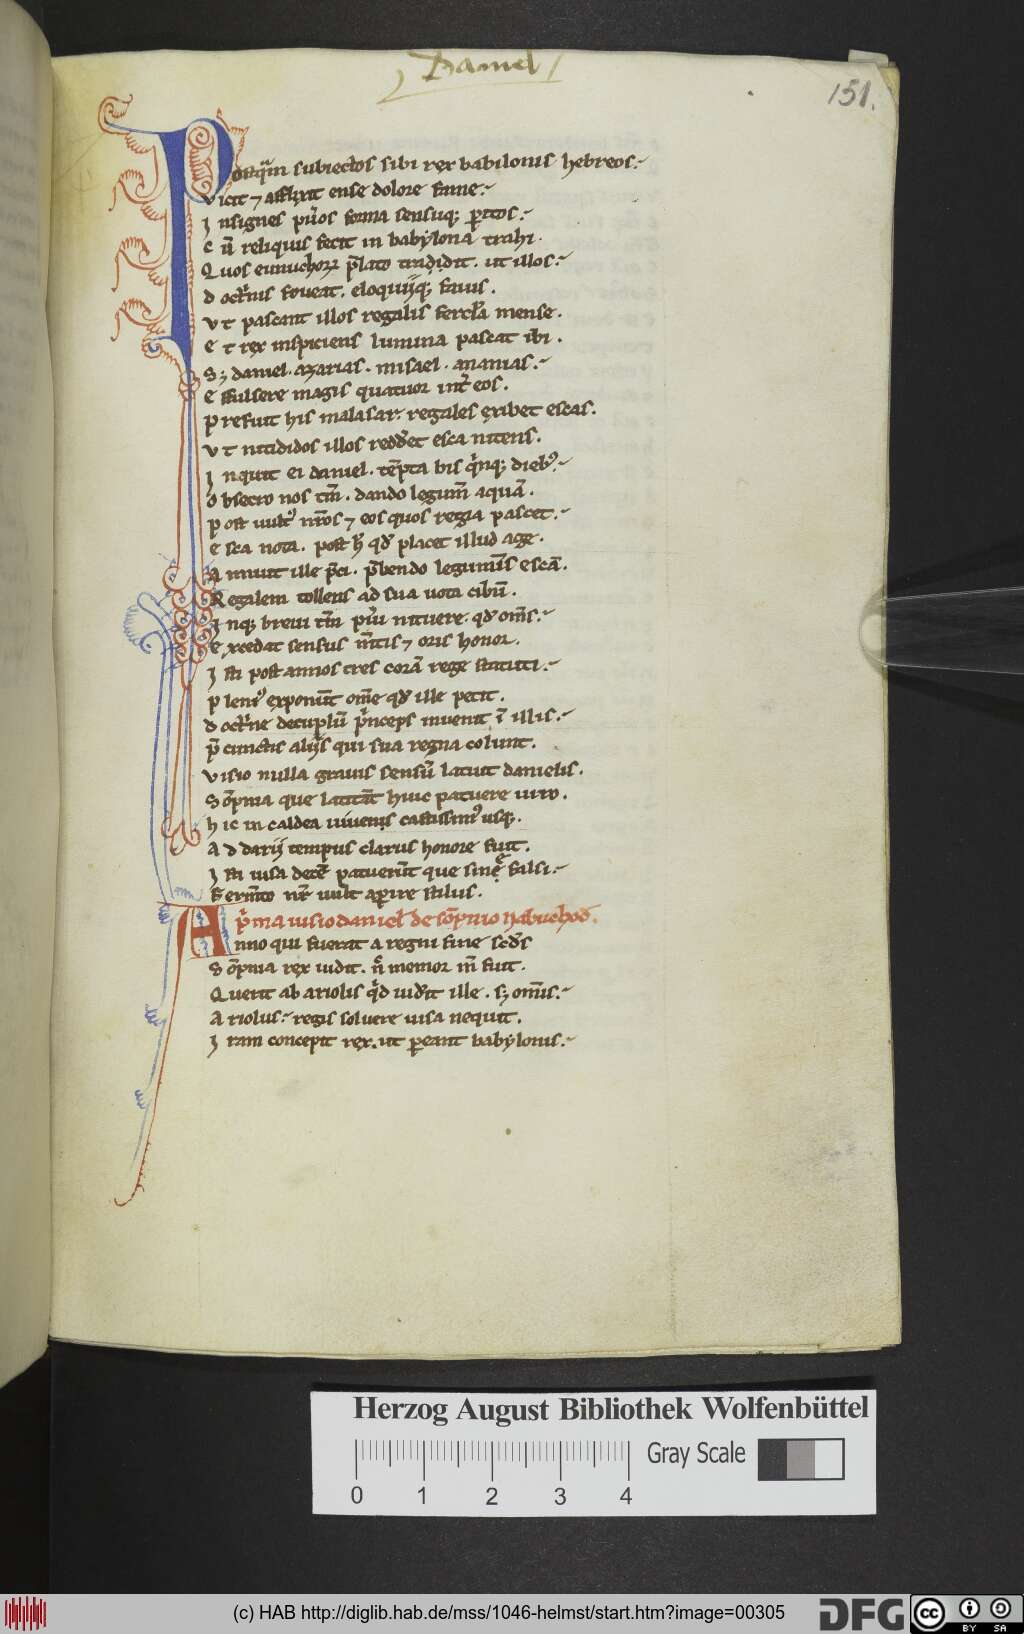 Daniel
151.
Postq̃m subiectos sibi rex babilonis hebreos.
Vicit ⁊ afflixit ense dolore fame.
Insignes pu̾os forma sensuq; ꝑitos.
Cũ reliquis fecit in babylona trahi.
Quos eunuchoꝝ p̃lato tradidit. ut illos.
doctⁱnis foueat. eloquijq; fauis.
Vt pascant illos regalis fercl̃a mense.
Et rex inspiciens lumina pascat ibi.
S; daniel. azarias. misael. ananias.
Effulsere magis quatuor int̾ eos.
Prefuit his malasar. regales exibet escas.
Vt nitididos illos redd̾et esca nitens.
Inquit ei daniel. tẽpta bis qⁱnq; dieb⁹.
Obsecro nos tm̃. dando legum̃ aquã.
post uult⁹ nr̃os ⁊ eos quos regia pascet.
Esca nota. post h̾ qd̾ placet illud age.
Annuit ille p̃ci. p̃bendo legumĩs escã.
Regalem tollens ad sua uota cibũ.
Inq; breui tm̃ pu̾i nituere qd̾ om̃s.
Excedat sensus m̃tis ⁊ oris honor.
Isti post annos tres corã rege statuti.
pleni⁹ exponũt om̃e qd̾ ille petit.
doctⁱne decuplũ pⁱnceps inuenit ĩ illis.
p̃ cunctis alijs qui sua regna colunt.
Visio nulla grauis sensũ latuit danielis.
Sõpnia que latitãt huic patuere uiro.
hic in caldea iuuenis castissim⁹ usq;.
Ad darij tempus clarus honore fuit.
Isti uisa decẽ patuerũt que sine falsi.
Ferm̃to nr̃ uult aperire stilus.
pⁱma uisio daniel̾ de sõpnio nabuchod̾.
Anno qui fuerat a regni fine scd̾s
Sõpnia rex uidit. ñ memor m̃ fuit.
Querit ab ariolis qⁱd uid̾it ille. s; omĩs.
Ariolus. regis soluere uisa nequit.
Iram concepit rex. ut ꝑeant babylonis.
Herzog August Bibliothek Wolfenbüttel
Gray Scale
0 1 2 3 4
(c) HAB http://diglib.hab.de/mss/1046-helmst/start.htm?image=00305
DFG
cc
BY SA